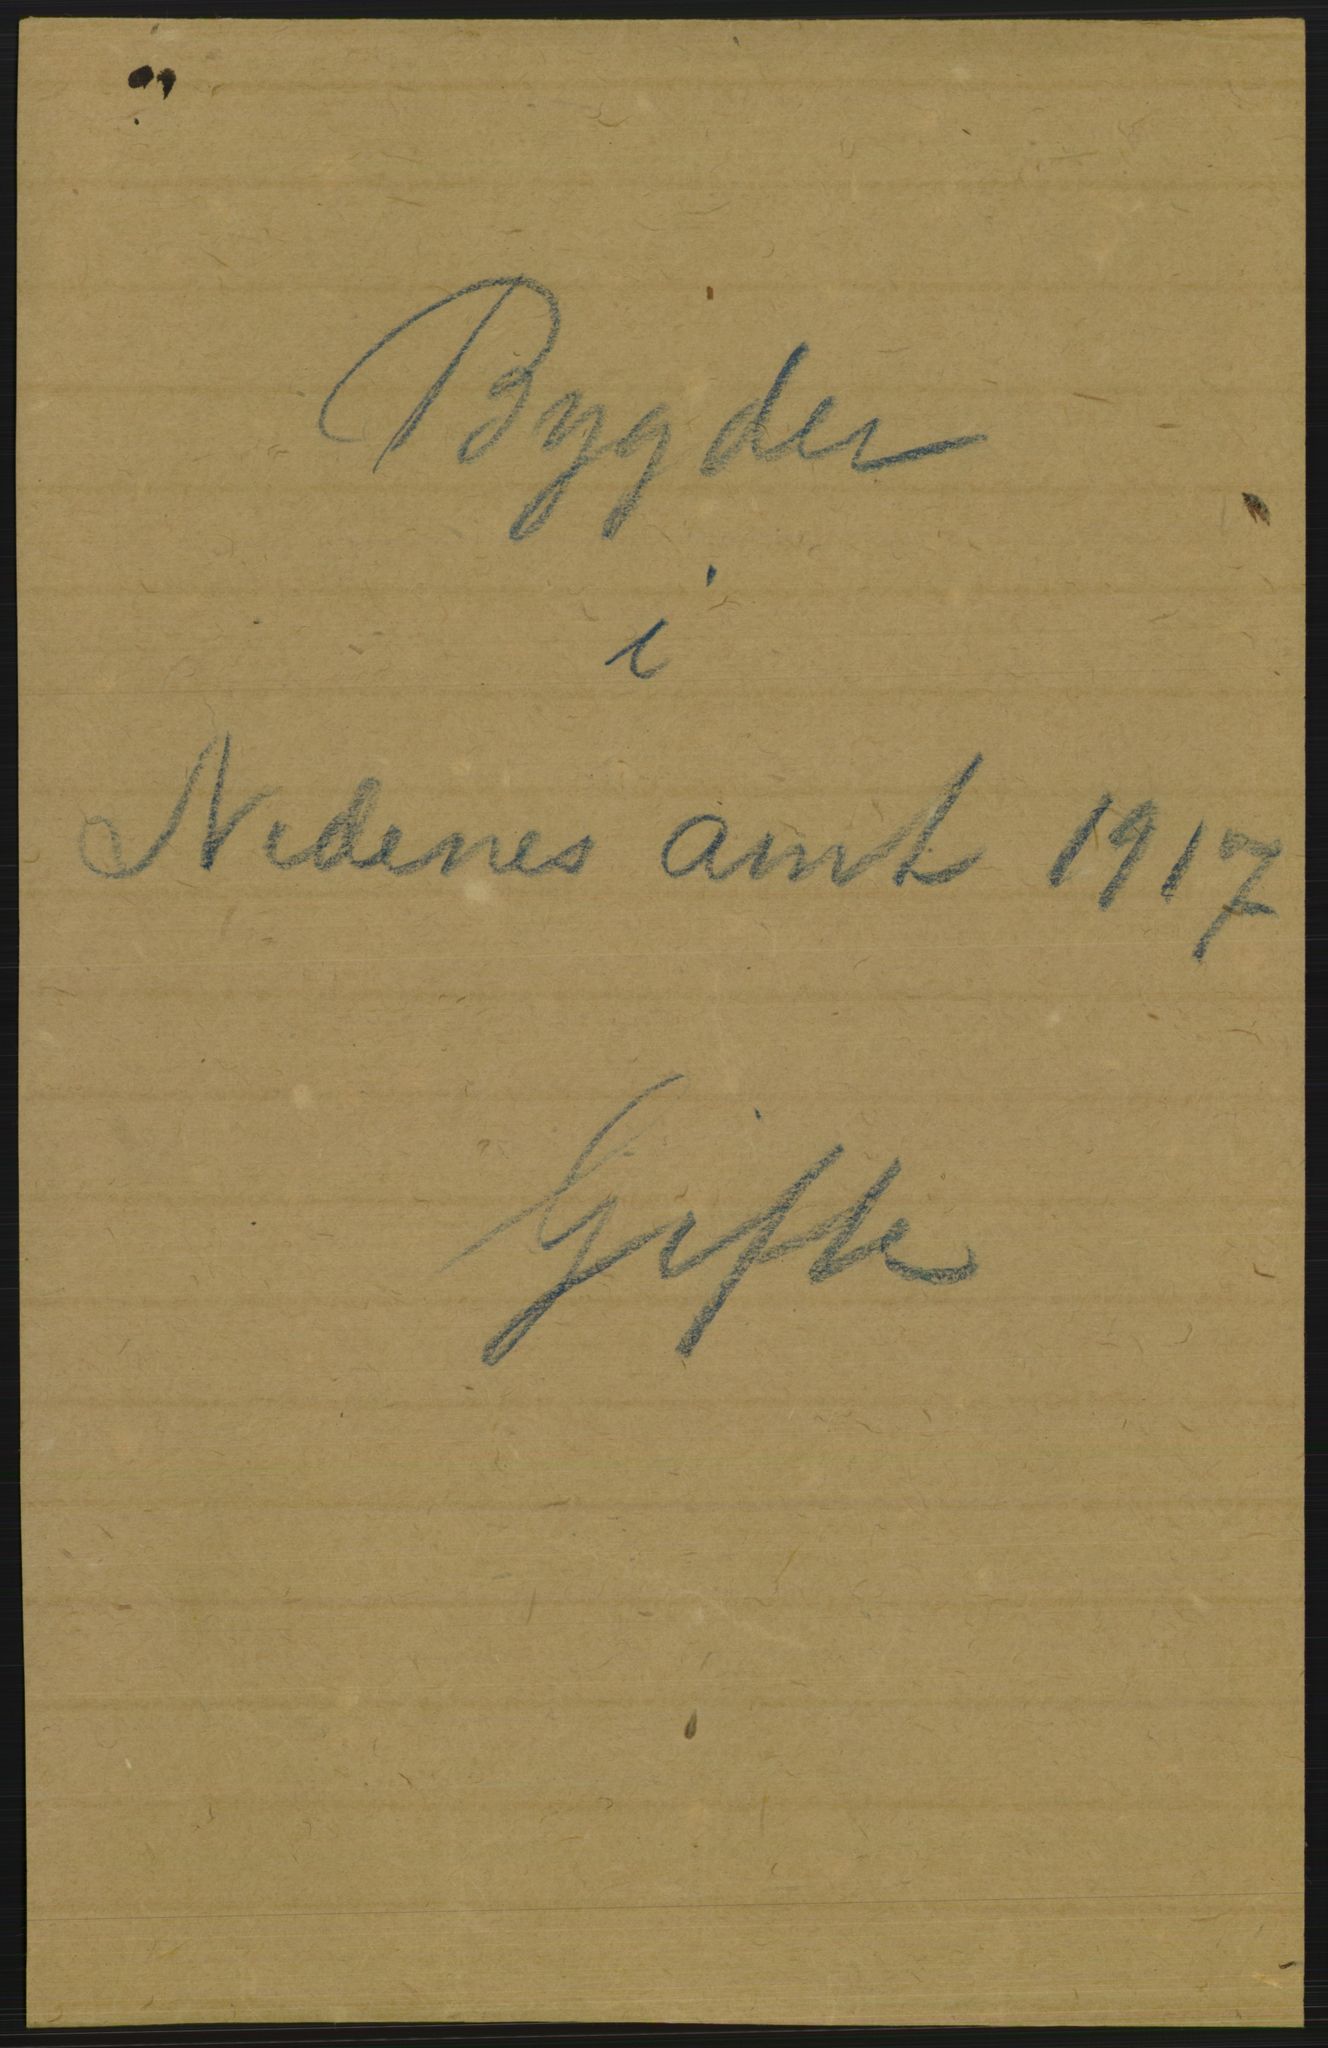 Bygder
i
Nedenes amt 1917
Gifte